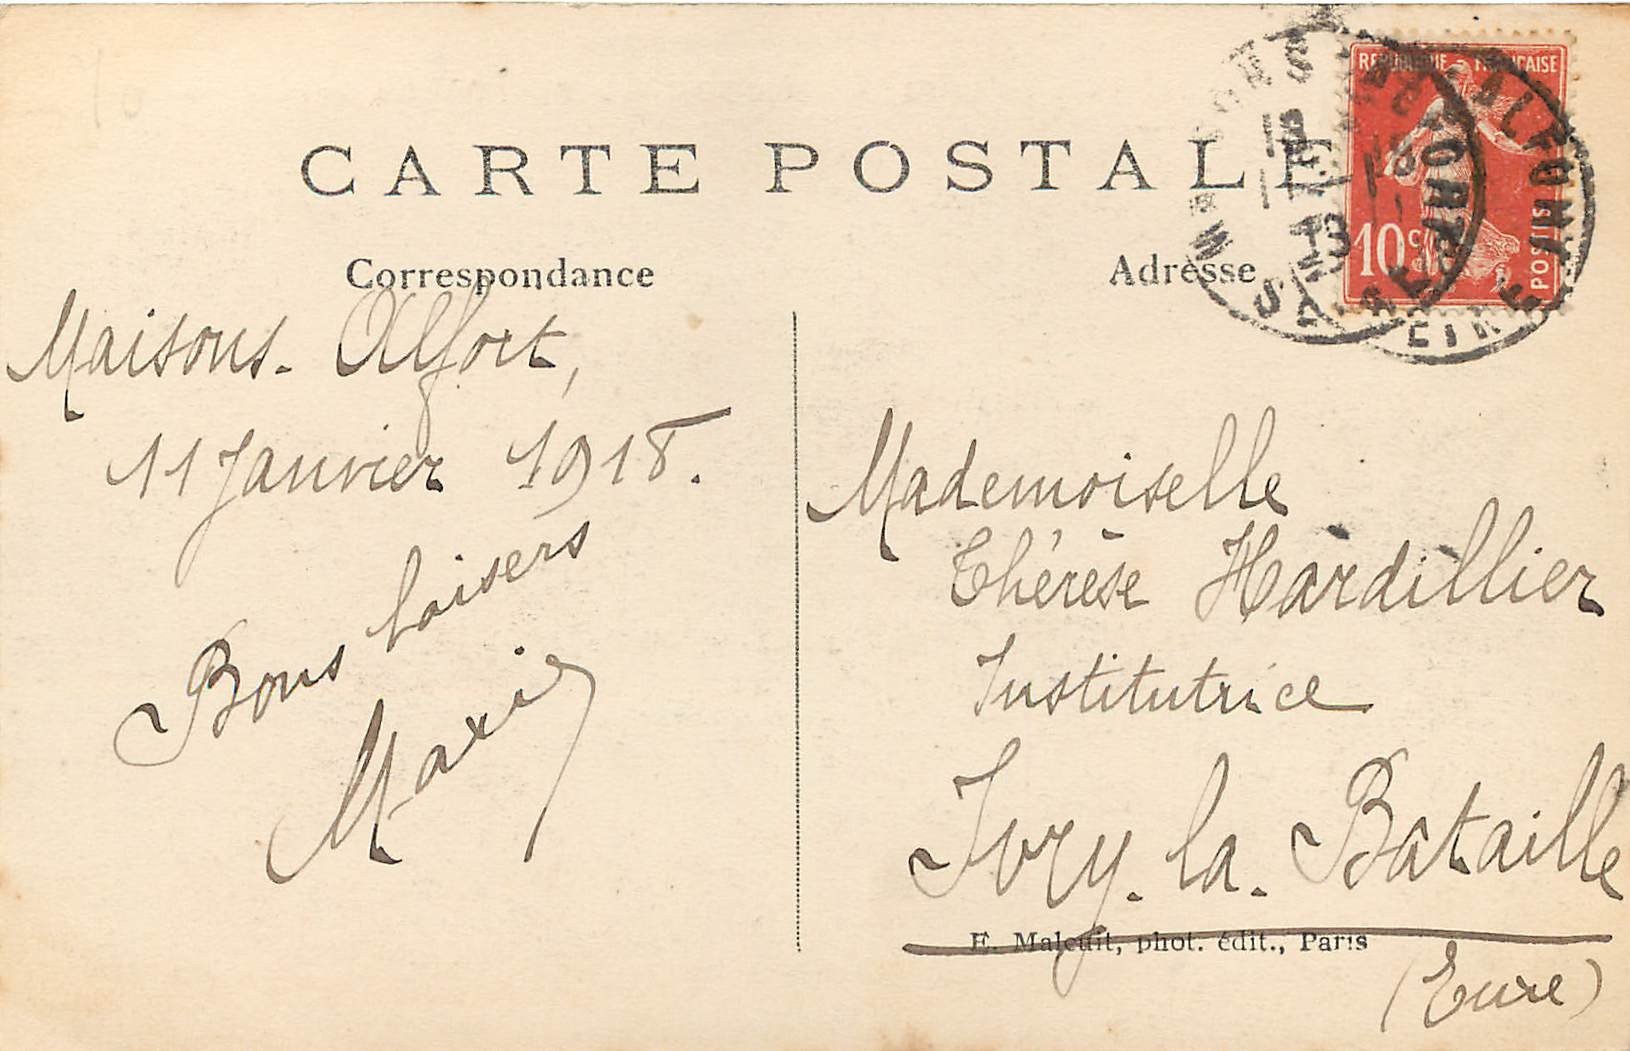 CARTE POSTALE
Correspondance
Adresse
REPUBLIQUE FRANÇAISE
10c
POSTES
Maisons-Alfort,
11 Janvier 1918.
Bons baisers
Marie
Mademoiselle
Thérèse Hardillier
Institutrice
Ivry-la-Bataille
E. Malcuit, phot. édit., Paris
(Eure)